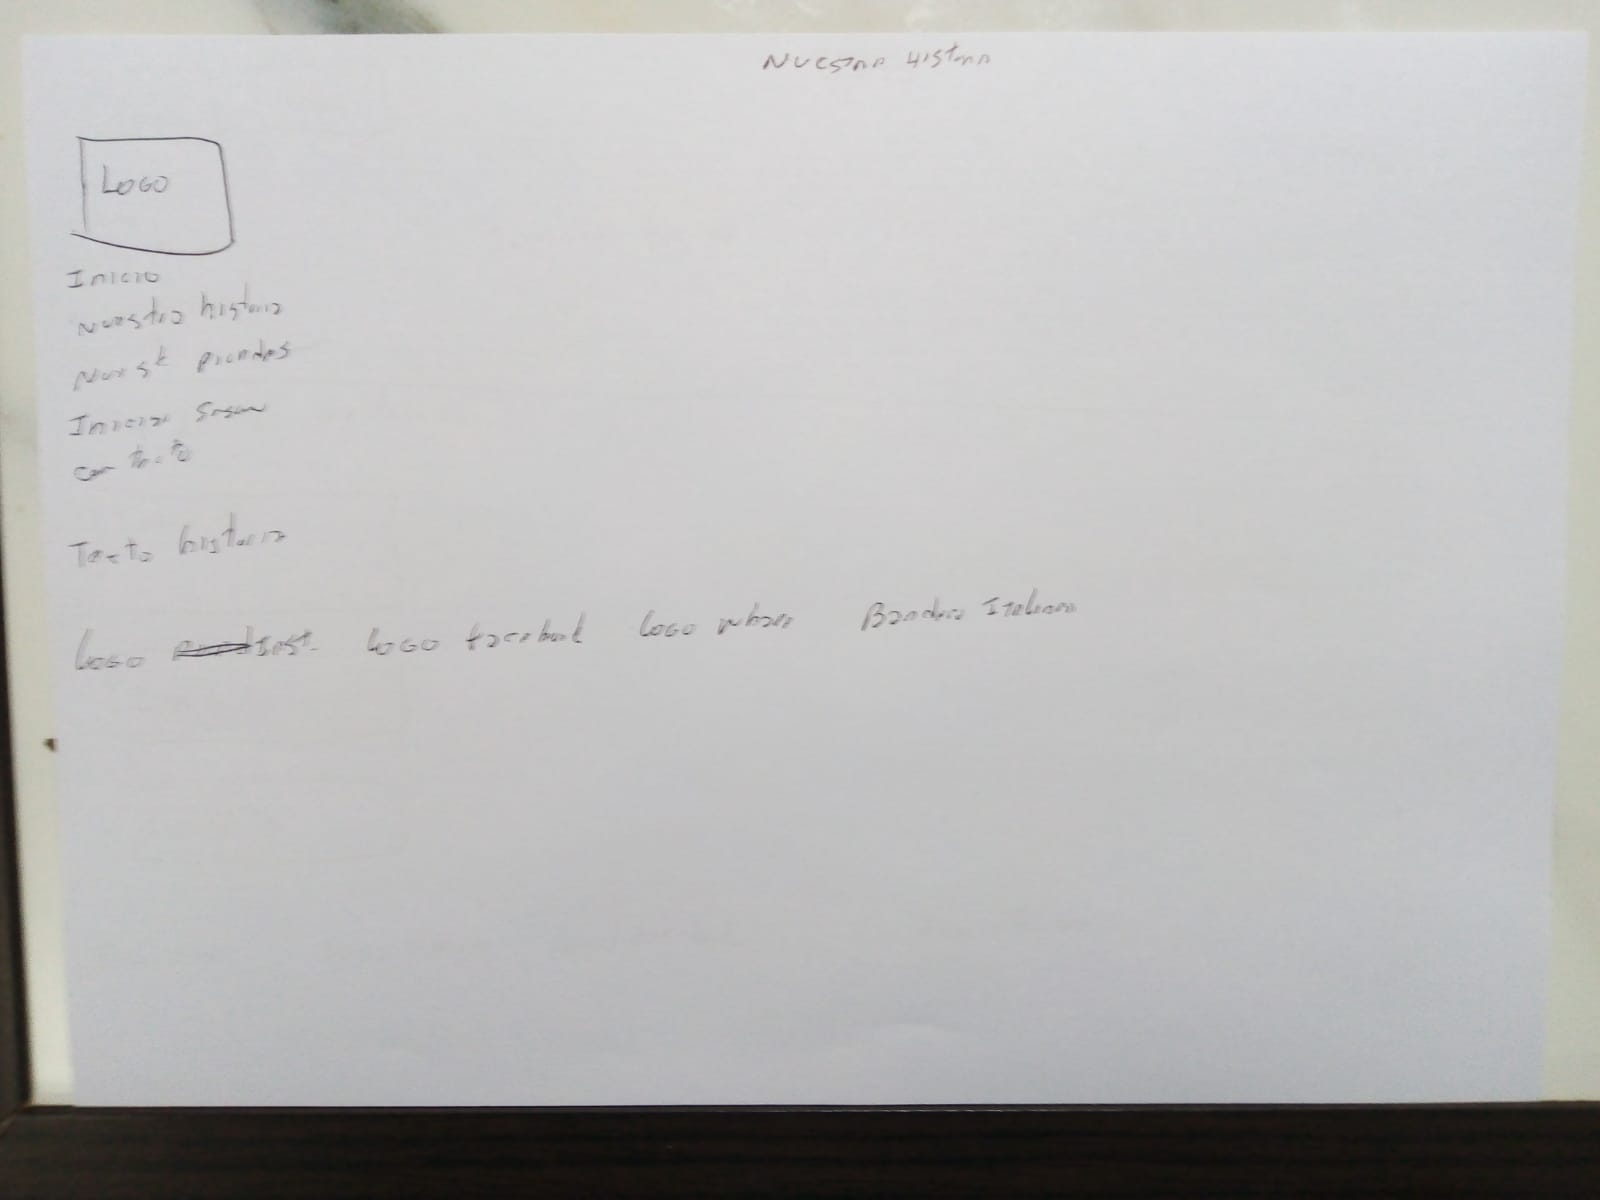 Nuestra Historia
LOGO
Inicio
Nuestra historia
Nuest
Iniciar Sesion
Contacto
Texto historia
Logo inst. Logo facebook Logo whats Bandera Italiana